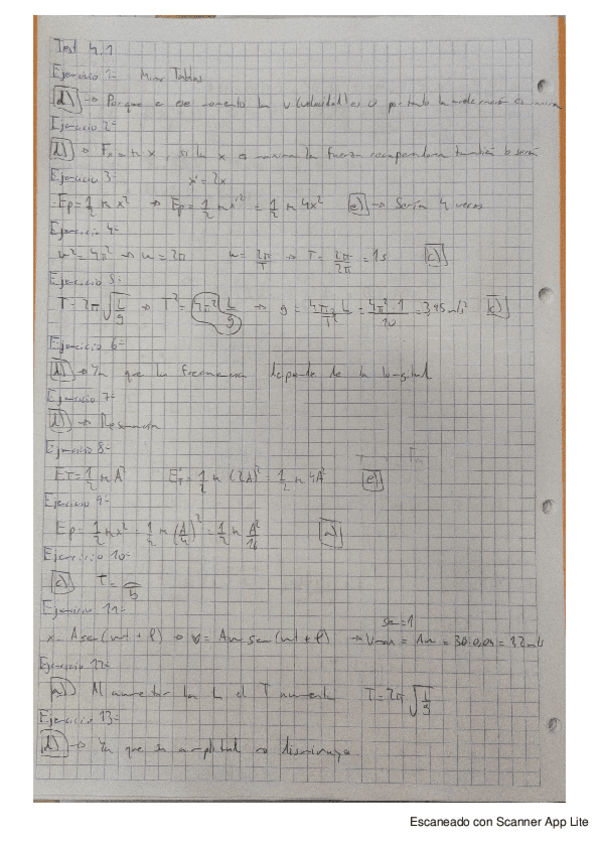 Test 4.1
Ejercicio 1- Mirar Tablas
d) → Porque e ese momento la v (velocidad) es
Ejercicio 2-
d) → F = k x , si la x es maxima la fuerza recuperadora también lo será
Ejercicio 3- x' = 2x
Ep = 1/2 k x² → Ep = 1/2 k x'² = 1/2 k 4x² e) → Serían 4 veces
Ejercicio 4-
w² = 4π² → w = 2π w = 2π/T → T = 2π/2π = 1s c)
Ejercicio 5-
T = 2π √(L/g) → T² = 4π² L/g → g = 4π² L/T² = 4π²·1/10 = 3,95 m/s² c)
Ejercicio 6-
d) → Ya que la frecuencia depende de la longitud
Ejercicio 7-
d) → Resonancia
Ejercicio 8-
ET = 1/2 k A² E'T = 1/2 k (2A)² = 1/2 k 4A² e)
Ejercicio 9-
Ep = 1/2 k x² = 1/2 k (A/4)² = 1/2 k A²/16 a)
Ejercicio 10-
c) T =
Ejercicio 11-
sen = 1
x = A sen (wt + φ) → v = Aw sen (wt + φ) → Vmax = Aw = = 3,2 m/s
Ejercicio 12-
a) Al aumentar la L el T aumenta T = 2π √(L/g)
Ejercicio 13-
d) → Ya que su amplitud no disminuye.
Escaneado con Scanner App Lite